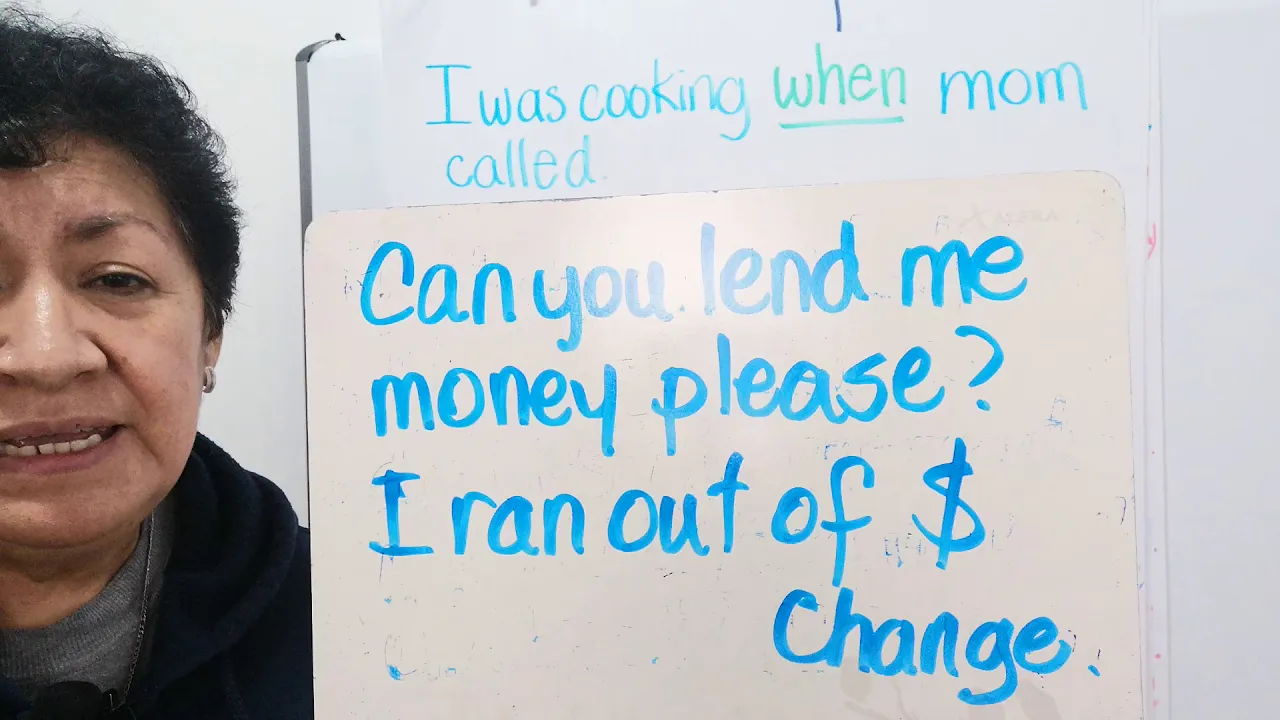 I was cooking when mom
called.
Can you lend me
money please?
I ran out of $
Change.